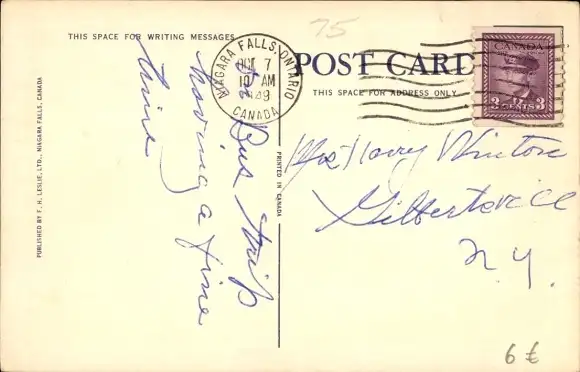 75
THIS SPACE FOR WRITING MESSAGES
POST CARD
THIS SPACE FOR ADDRESS ONLY
NIAGARA FALLS, ONTARIO
OCT 7
10 AM
CANADA
CANADA
3 CENTS 3
PUBLISHED BY F. H. LESLIE, LTD., NIAGARA FALLS, CANADA
PRINTED IN CANADA
Bus trip
having a fine
time
Mrs Harry Winton
Gilbertsville
N.Y.
6 €